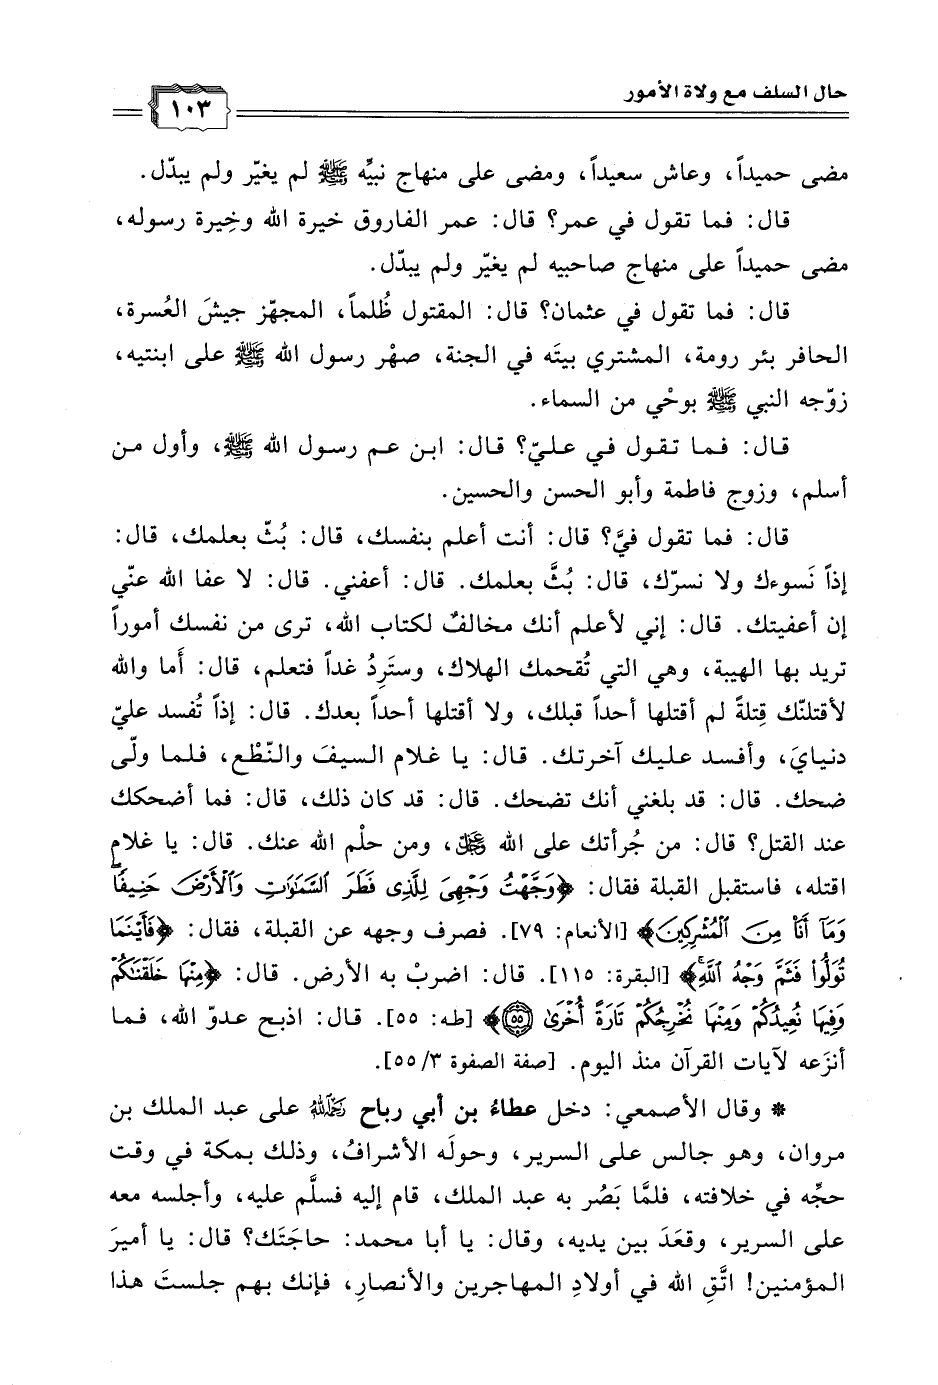 حال السلف مع ولاة الأمور
١٠٣
مضى حميداً، وعاش سعيداً، ومضى على منهاج نبيِّه ﷺ لم يغيّر ولم يبدّل.
قال: فما تقول في عمر؟ قال: عمر الفاروق خيرة الله وخِيرة رسوله،
مضى حميداً على منهاج صاحبيه لم يغيّر ولم يبدّل.
قال: فما تقول في عثمان؟ قال: المقتول ظُلماً، المجهّز جيشَ العُسرة،
الحافر بئر رومة، المشتري بيتَه في الجنة، صهْر رسول الله ﷺ على ابنتيه،
زوّجه النبي ﷺ بوحْي من السماء.
قال: فما تقول في عليّ؟ قال: ابن عم رسول الله ﷺ، وأول من
أسلم، وزوج فاطمة وأبو الحسن والحسين.
قال: فما تقول فيَّ؟ قال: أنت أعلم بنفسك، قال: بُثّ بعلمك، قال:
إذاً نَسوءك ولا نسرّك، قال: بُثَّ بعلمك. قال: أعفني. قال: لا عفا الله عنّي
إن أعفيتك. قال: إني لأعلم أنك مخالفٌ لكتاب الله، ترى من نفسك أموراً
تريد بها الهيبة، وهي التي تُقحمك الهلاك، وستَرِدُ غداً فتعلم، قال: أَما والله
لأقتلنّك قِتلةً لم أقتلها أحداً قبلك، ولا أقتلها أحداً بعدك. قال: إذاً تُفسد عليّ
دنيايَ، وأفسد عليك آخرتك. قال: يا غلام السيفَ والنّطْع، فلما ولّى
ضحك. قال: قد بلغني أنك تضحك. قال: قد كان ذلك، قال: فما أضحكك
عند القتل؟ قال: من جُرأتك على الله ﷿، ومن حلْم الله عنك. قال: يا غلام
اقتله، فاستقبل القبلة فقال: ﴿وَجَّهْتُ وَجْهِيَ لِلَّذِي فَطَرَ السَّمَٰوَٰتِ وَٱلْأَرْضَ حَنِيفًا
وَمَآ أَنَا۠ مِنَ ٱلْمُشْرِكِينَ﴾ [الأنعام: ٧٩]. فصرف وجهه عن القبلة، فقال: ﴿فَأَيْنَمَا
تُوَلُّوا۟ فَثَمَّ وَجْهُ ٱللَّهِ﴾ [البقرة: ١١٥]. قال: اضربْ به الأرض. قال: ﴿مِنْهَا خَلَقْنَٰكُمْ
وَفِيهَا نُعِيدُكُمْ وَمِنْهَا نُخْرِجُكُمْ تَارَةً أُخْرَىٰ ۝٥٥﴾ [طه: ٥٥]. قال: اذبح عدوّ الله، فما
أنزَعه لآيات القرآن منذ اليوم. [صفة الصفوة ٣/ ٥٥].
* وقال الأصمعي: دخل عطاءُ بن أبي رباح رَحِمَهُ اللهُ على عبد الملك بن
مروان، وهو جالس على السرير، وحولَه الأشرافُ، وذلك بمكة في وقت
حجِّه في خلافته، فلمَّا بَصُر به عبد الملك، قام إليه فسلَّم عليه، وأجلسه معه
على السرير، وقعَدَ بين يديه، وقال: يا أبا محمد: حاجَتَك؟ قال: يا أميرَ
المؤمنين! اتَّقِ الله في أولادِ المهاجرين والأنصارِ، فإنك بهم جلستَ هذا